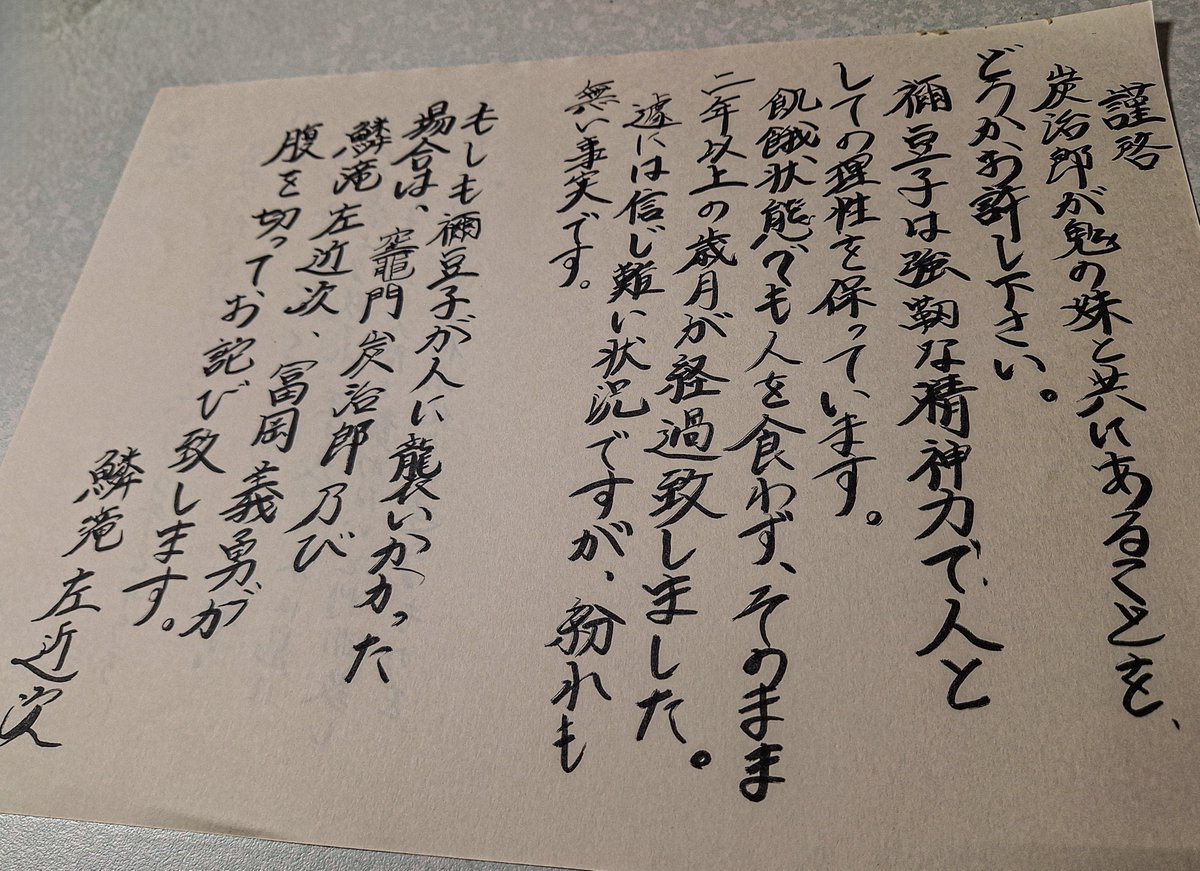 謹啓
炭治郎が鬼の妹と共にあることを、
どうかお許し下さい。
禰豆子は強靭な精神力で人と
しての理性を保っています。
飢餓状態でも人を食わず、そのまま
二年以上の歳月が経過致しました。
遽には信じ難い状況ですが、紛れも
無い事実です。
もしも禰豆子が人に襲いかかった
場合は、竈門炭治郎及び
鱗滝左近次、冨岡義勇が
腹を切ってお詫び致します。
鱗滝左近次